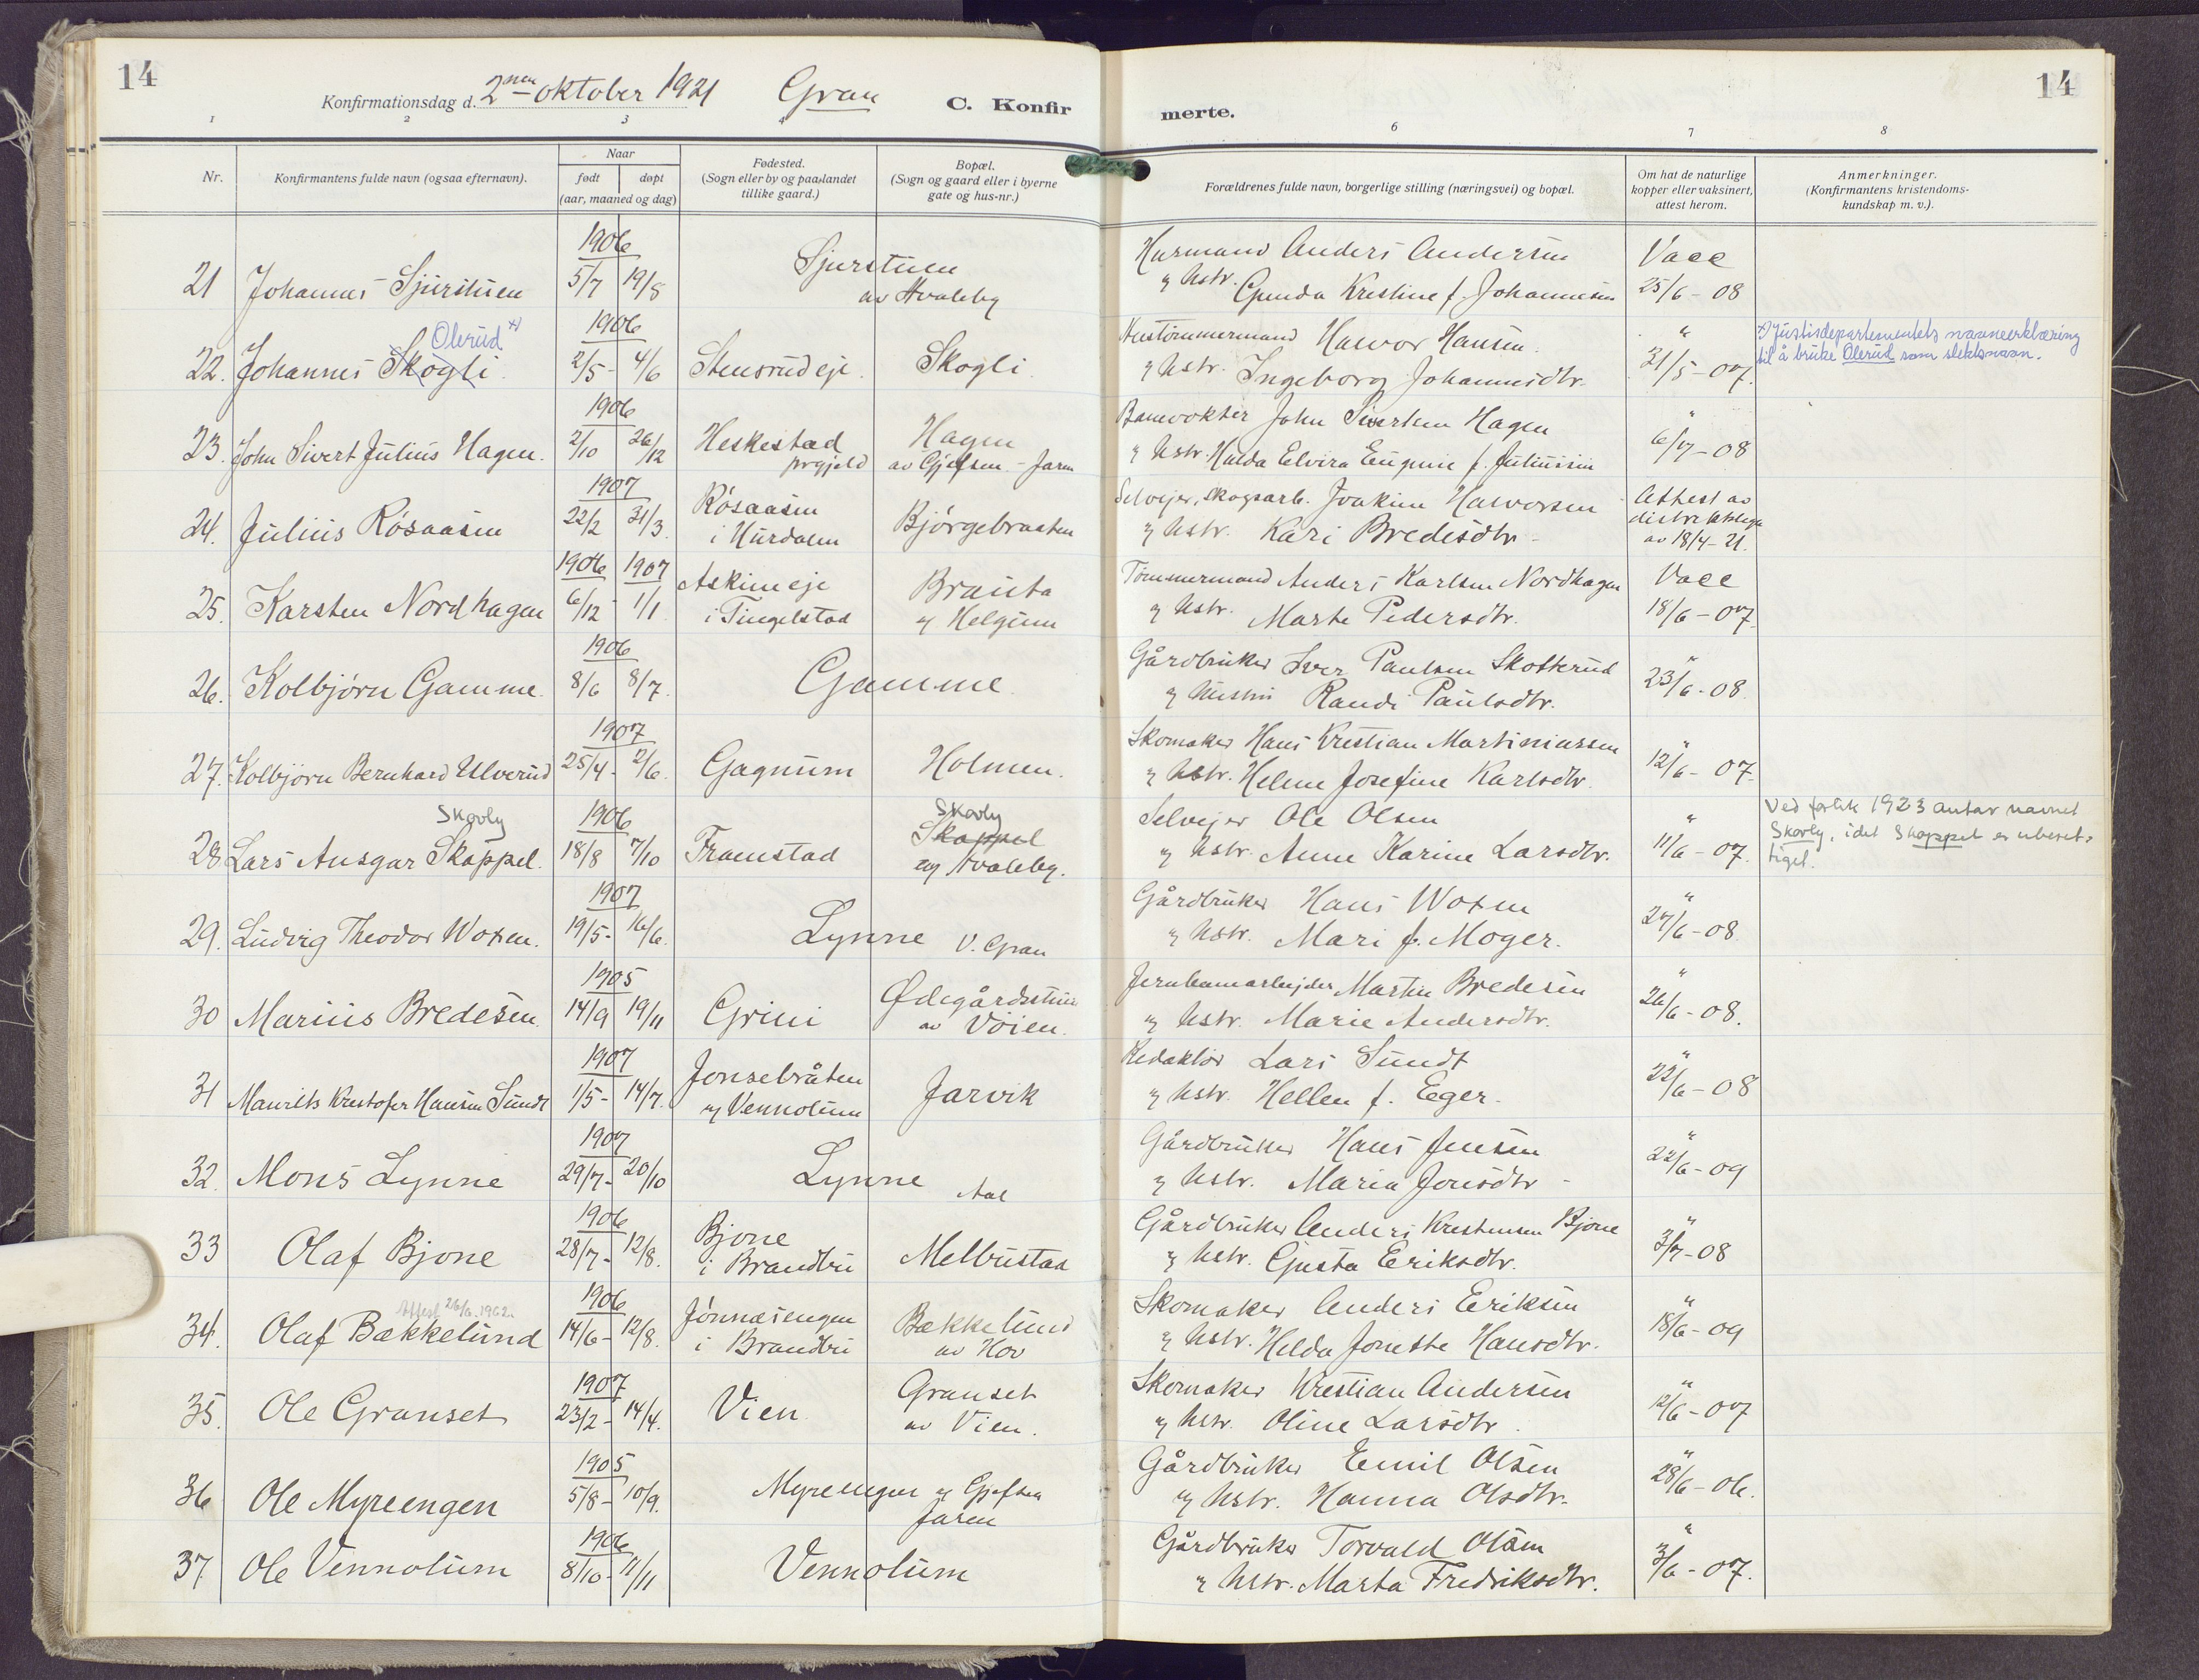 14
Konfirmationsdag d. 2nen oktober 1921 Gran C. Konfir
1 2 3 4
Nr.
Konfirmantens fulde navn (ogsaa efternavn).
Naar
født døpt
(aar, maaned og dag)
Fødested.
(Sogn eller by og paa landet
tillike gaard.)
Bopæl.
(Sogn og gaard eller i byerne
gate og hus-nr.)
merte.
14
6 7 8
Forældrenes fulde navn, borgerlige stilling (næringsvei) og bopæl.
Om hat de naturlige
kopper eller vaksinert,
attest herom.
Anmerkninger.
(Konfirmantens kristendoms-
kundskap m. v.).
1906
21 Johannes Sjurstuen 5/7 19/8 Sjurstuen
av Hvaleby
Husmand Anders Andersen Vacc
og hstr. Gunda Kristine f. Johannesen 25/6-08
Olerud x)
1906
22. Johannes Skogli. 2/5- 4/6 Stensrudeje Skogli
Hustømmermand Hawor Hansen "
og hstr. Ingeborg Johannesdtr. 31/5-07.
x) Justisdepartementets navneerklæring
til å bruke Olerud som slektsnavn.
1906
23. John Sivert Julius Hagen. 2/10 26/12 Heskestad Hagen
prgjeld av Gjefsen - Jaren
Banevokter John Sivertsen Hagen "
og hstr. Hulda Elvira Eugenie f. Juliussen 6/7-08
1907
24. Julius Rösaasen 22/2 31/3. Rösaasen
i Hurdalen Björgebraaten
Selvejer, skogsarb. Joakim Haworsen Attest av
og hstr. Kari Bredesdtr - distriktslæge
av 18/4-21.
1906 1907
25. Karsten Nordhagen 6/12 - 1/1 Askimeje Brauta
i Tingelstad og Helgum
Tømmermand Anders Karlsen Nordhagen Vacc
og hstr. Marte Pedersdtr. 18/6-07
1906
26. Kolbjörn Gamme. 8/6 8/7. Gamme
Gårdbruker Iver Paulsen Skotterud "
og hustru Randi Paulsdtr. 23/6-08.
1907
27. Kolbjörn Bernhard Ulverud 25/4- 2/6. Gagnum Holmen.
Skomaker Hans Kristian Martiniussen "
og hstr. Helene Josefine Karlsdtr. 12/6-07
Skovly 1906 Skovly
28 Lars Ansgar Skappel. 18/8 7/10 Framstad Skappel
av Hvaleby.
Selvejer Ole Olsen "
og hstr. Anne Karine Larsdtr. 11/6-07.
Ved forlik 1923 antar navnet
Skovly, idet Skappel er uberet-
tiget.
1907
29. Ludvig Theodor Woxen. 19/5- 16/6. Lynne V. Gran
Gårdbruker Hans Woxen "
og hstr. Mari f. Moger. 27/6-08.
1905
30 Marius Bredesen. 14/9 19/11 Grini Ødegårdstuen
av Vöien.
Jernbanearbejder Martin Bredesen "
og hstr. Marie Andersdtr. 26/6-08.
1907
31 Maurits Kristofer Hansen Sundt 1/5- 14/7. Jonsebråten Jarvik
og Vennolum
Redaktör Lars Sundt "
og hstr. Hellen f. Eger. 22/6-08
1907
32. Mons Lynne 29/7- 20/10 Lynne Aal
Gårdbruker Hans Jensen "
og hstr. Maria Jonsdtr - 22/6-09
1906
33 Olaf Bjone 28/7- 12/8. Bjone Melbustad
i Brandbu
Gårdbruker Anders Kristensen Bjone "
og hstr. Gusta Eriksdtr. 3/7-08
Attest 26/6.1962. 1906
34. Olaf Bækkelund 14/6- 12/8. Jönnæsengen Bækkelund
i Brandbu av Hov
Skomaker Anders Eriksen "
og hstr. Helda Jonette Hansdtr. 18/6-09
1907
35. Ole Granset 23/2- 14/4. Vien Granset
av Vien.
Skomaker Kristian Andersen "
og hstr. Oline Larsdtr. 12/6-07
1905
36 Ole Myreengen 5/8- 10/9. Myreengen av Gjefsen
Jaren
Gårdbruker Emil Olsen "
og hstr. Hanna Olsdtr. 28/6-06.
1906
37 Ole Vennolum 8/10- 11/11 Vennolum
Gårdbruker Torvald Olsen "
og hstr. Marta Fredriksdtr. 3/6-07.